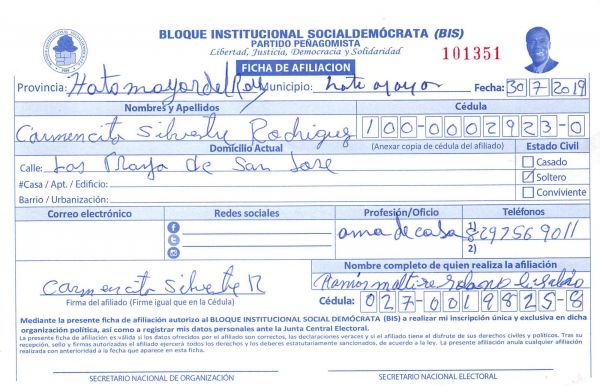 BLOQUE INSTITUCIONAL SOCIALDEMÓCRATA (BIS)
PARTIDO PEÑAGOMISTA
Libertad, Justicia, Democracia y Solidaridad
101351
FICHA DE AFILIACION
Provincia: Hato mayor del Rey Municipio: hato mayor Fecha: 30/7/2019
Nombres y Apellidos Cédula
Carmencita Silvestre Rodriguez 100-0002923-0
Domicilio Actual (Anexar copia de cédula del afiliado) Estado Civil
Calle: Las Playa de San Jose Casado
#Casa / Apt. / Edificio: Soltero
Barrio / Urbanización: Conviviente
Correo electrónico Redes sociales Profesión/Oficio Teléfonos
ama de casa 1) 829 756 9011
2)
Nombre completo de quien realiza la afiliación
Carmencita Silvestre R Ramón
Firma del afiliado (Firme igual que en la Cédula) Cédula: 027-0019825-8
Mediante la presente ficha de afiliación autorizo al BLOQUE INSTITUCIONAL SOCIAL DEMÓCRATA (BIS) a realizar mi inscripción única y exclusiva en dicha
organización política, así como a registrar mis datos personales ante la Junta Central Electoral.
La presente ficha de afiliación es válida si los datos ofrecidos por el afiliado son correctos, las declaraciones veraces y si el afiliado tiene el disfrute de sus derechos civiles y políticos. Tras su
recepción, sello y firmas autorizadas el afiliado ejercerá todos los derechos y los deberes estatutariamente sancionados, de acuerdo a la ley. La presente afiliación anula cualquier afiliación
realizada con anterioridad a la fecha que aparece en esta ficha.
SECRETARIO NACIONAL DE ORGANIZACIÓN SECRETARIO NACIONAL ELECTORAL